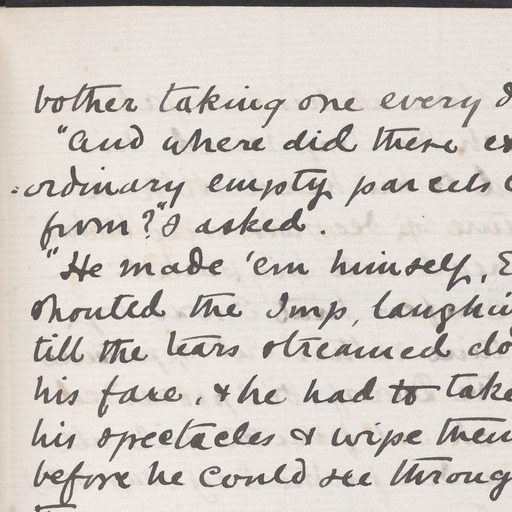 bother taking one every d
"And where did these ex
-ordinary empty parcels c
from?" I asked.
"He made 'em himself, E
shouted the Imp, laughin
till the tears streamed do
his face, & he had to take
his spectacles & wipe them
before he could see throug